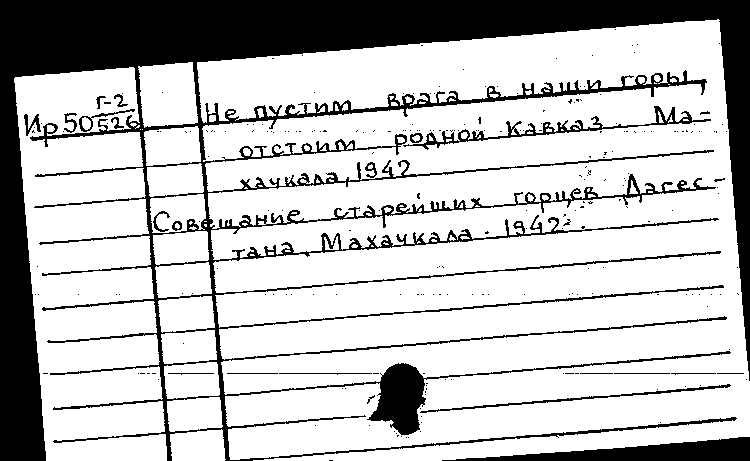 Ир50 Г-2/526
Не пустим врага в наши горы,
отстоим родной Кавказ. Ма-
хачкала, 1942
Совещание старейших горцев Дагес-
тана. Махачкала. 1942.